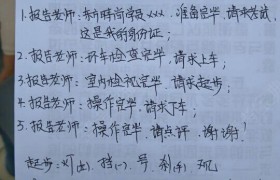 1.报告老师:东方时尚学员xxx.准备完毕.请求考试,
这是我的身份证;
2.报告老师:环车检查完毕,请求上车;
3.报告老师:室内检视完毕.请求起步;
4.报告老师:操作完毕.请求下车;
5.报告老师:操作完毕.请点评.谢谢!
起步:灯(左).档(一).号.刹(手).观